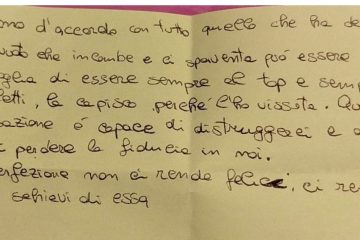 ono d'accordo con tutto quello che ha de
uoto che incombe e ci spaventa può essere
glia di essere sempre al top e semp
etti, la capisco, perché l'ho vissuta. Qu
azione é capace di distruggerci e
perdere la fiducia in noi.
erfezione non ci rende felici, ci re
schiavi di essa